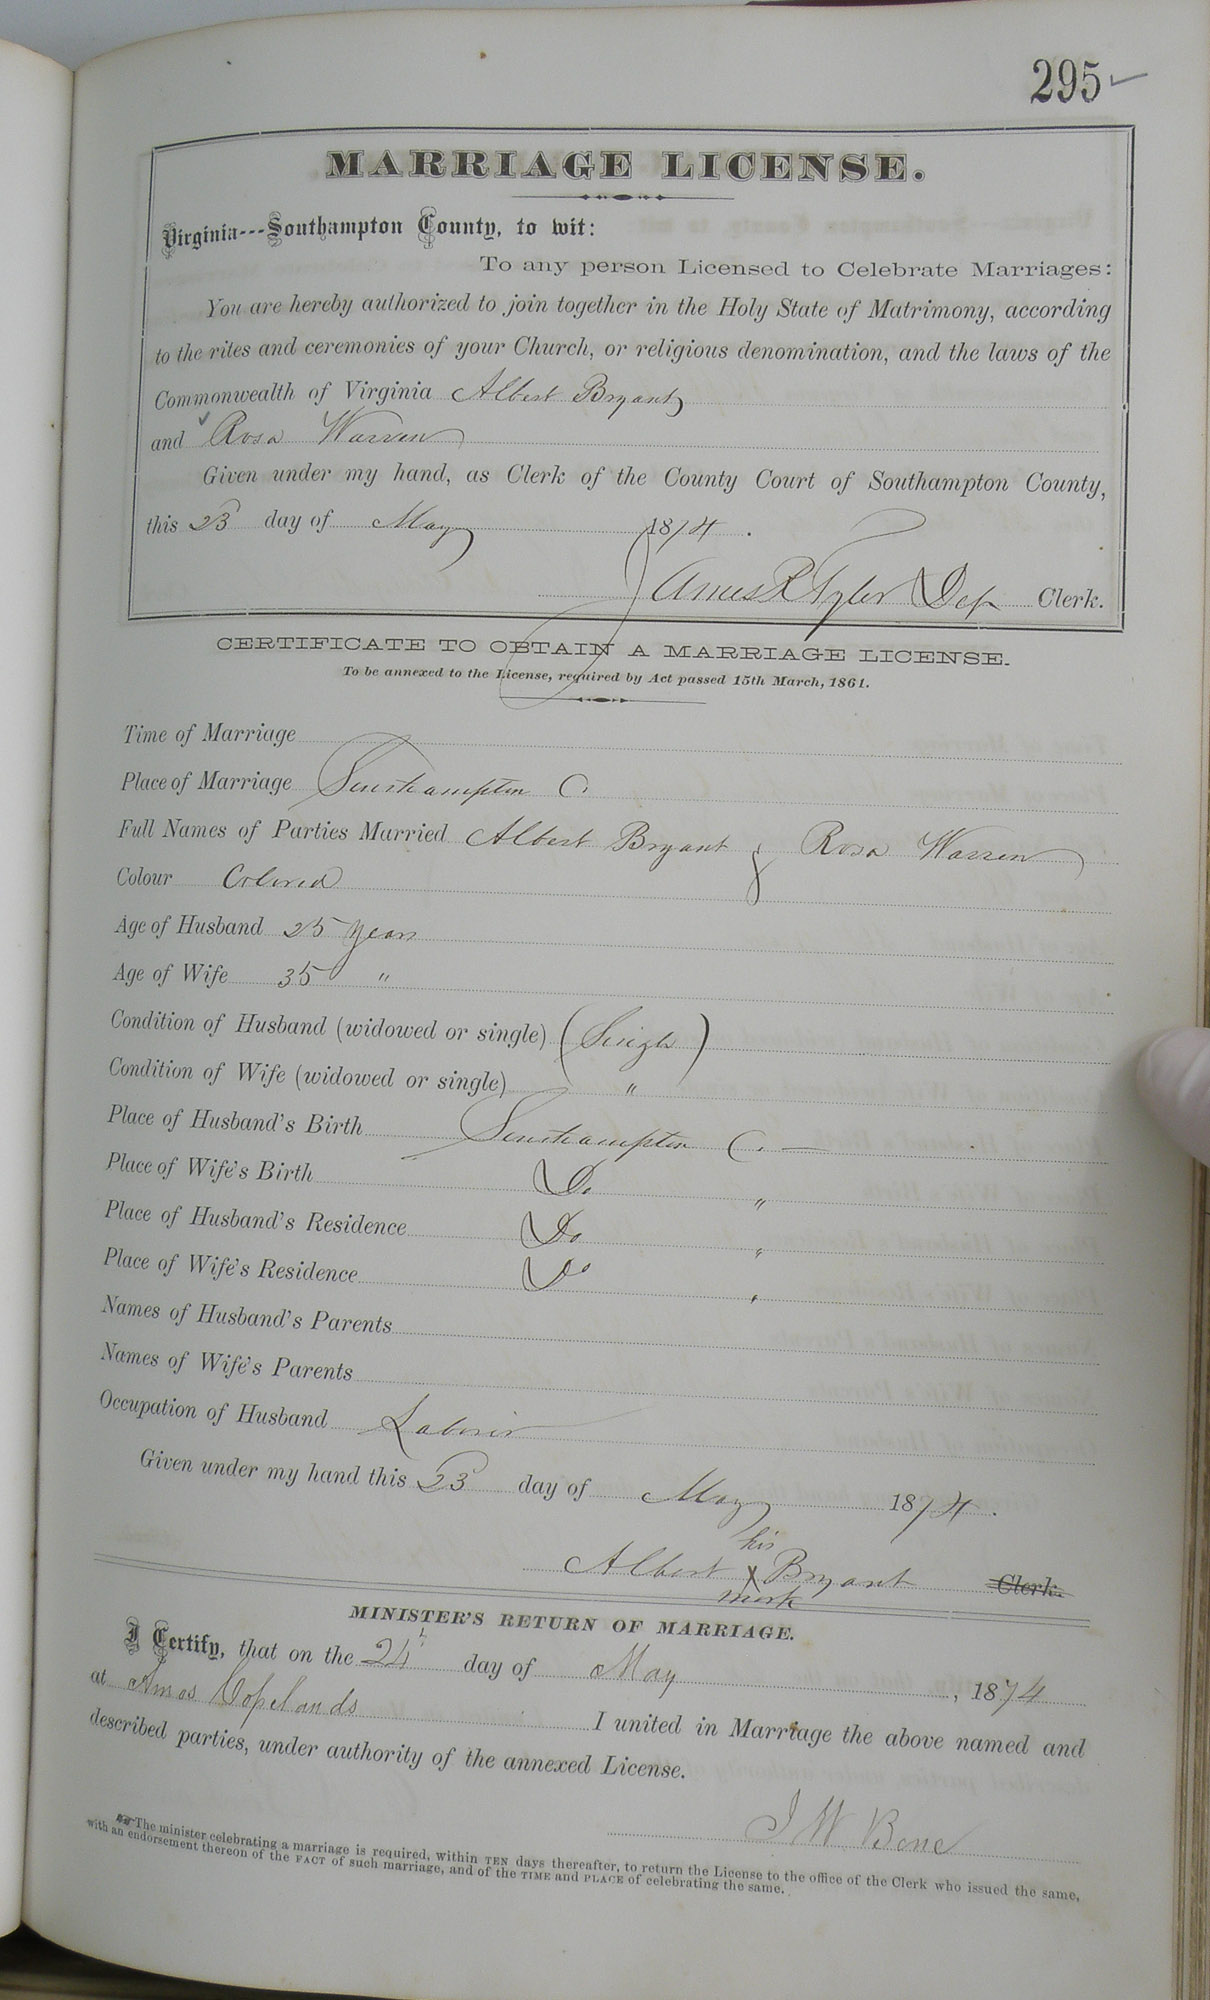 295
MARRIAGE LICENSE.
Virginia---Southampton County, to wit:
To any person Licensed to Celebrate Marriages:
You are hereby authorized to join together in the Holy State of Matrimony, according
to the rites and ceremonies of your Church, or religious denomination, and the laws of the
Commonwealth of Virginia Albert Bryant
and Rosa Warren
Given under my hand, as Clerk of the County Court of Southampton County,
this 23 day of May 1874.
James R Tyler Dep Clerk.
CERTIFICATE TO OBTAIN A MARRIAGE LICENSE.
To be annexed to the License, required by Act passed 15th March, 1861.
Time of Marriage
Place of Marriage Southampton C.
Full Names of Parties Married Albert Bryant & Rosa Warren
Colour Colored
Age of Husband 25 years
Age of Wife 35 "
Condition of Husband (widowed or single) (Single)
Condition of Wife (widowed or single) "
Place of Husband's Birth Southampton C. —
Place of Wife's Birth Do "
Place of Husband's Residence Do "
Place of Wife's Residence Do "
Names of Husband's Parents
Names of Wife's Parents
Occupation of Husband Laborer
Given under my hand this 23 day of May 1874.
his
Albert X Bryant Clerk.
mark
MINISTER'S RETURN OF MARRIAGE.
I Certify, that on the 24 day of May, 1874
at Amos Copelands I united in Marriage the above named and
described parties, under authority of the annexed License.
J W Bone
The minister celebrating a marriage is required, within TEN days thereafter, to return the License to the office of the Clerk who issued the same,
with an endorsement thereon of the FACT of such marriage, and of the TIME and PLACE of celebrating the same.